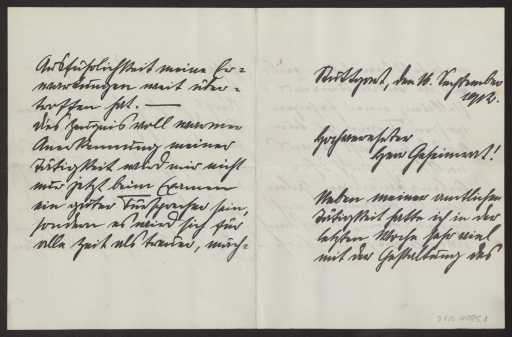 Stuttgart, den 16. September
1912.
Hochverehrter
Herr Geheimerat!
Neben meiner amtlichen
Tätigkeit hatte ich in der
letzten Woche sehr viel
mit der Gestaltung des
Ausführlichkeit meine Er-
wartungen weit über-
troffen hat. —
Dies Zeugnis voll warmer
Anerkennung meiner
Tätigkeit wird mir nicht
nur jetzt beim Examen
ein guter Fürsprecher sein,
sondern es wird sich für
alle Zeit als treuer, mäch-